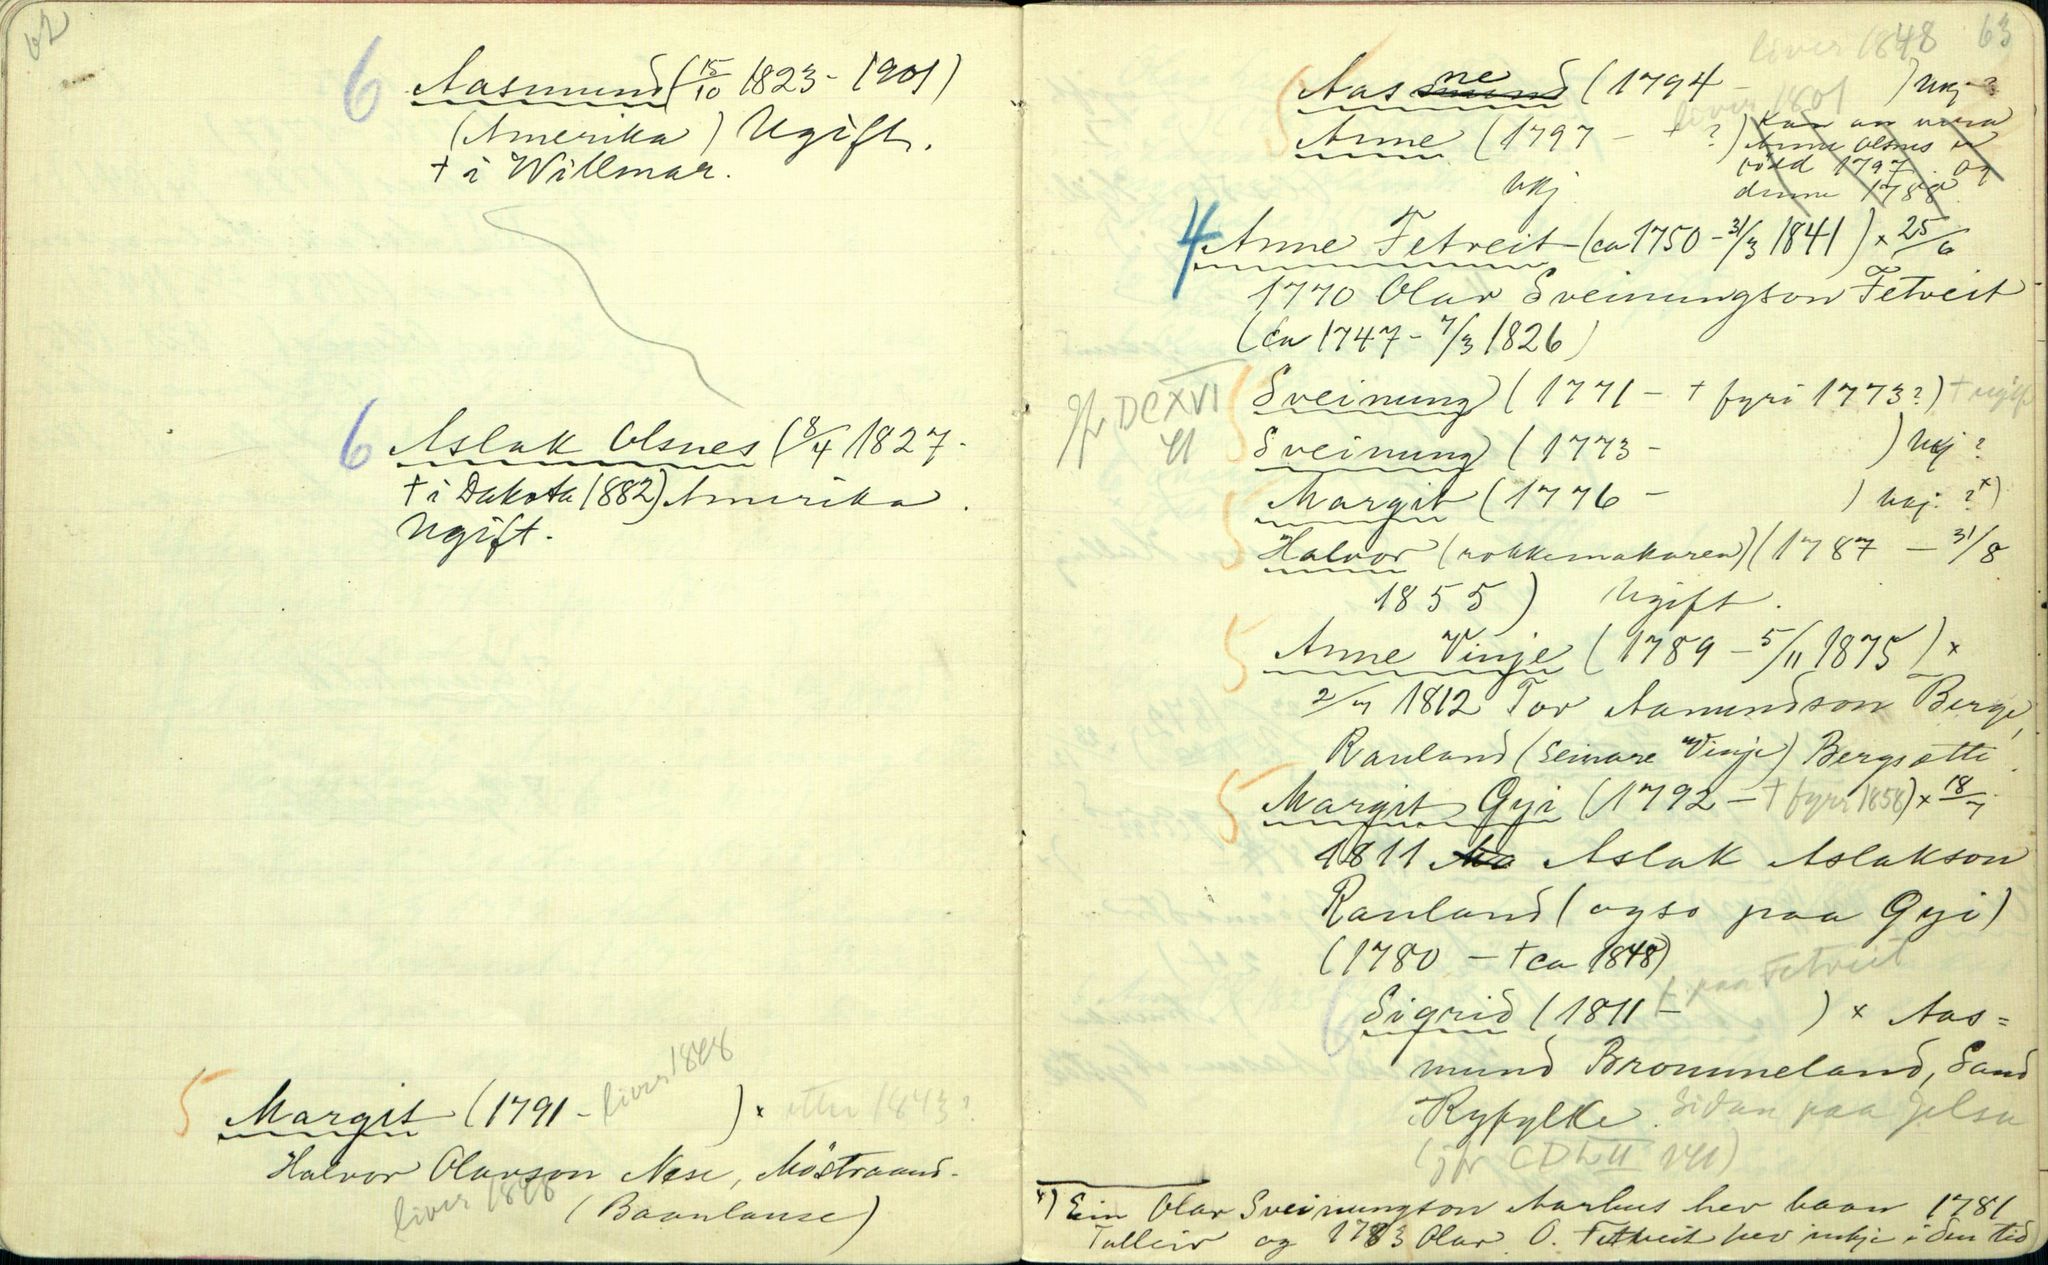 62
6 Aasmund (15/10 1823 - 1901)
(Amerika) Ugift.
† i Willmar.
6 Aslak Olsnes (8/4 1827 -
† i Dakota 1882) Amerika.
Ugift.
5 Margit (1791 - liver 1848 ) × etter 1843?
Halvor Olavson Nese, Möstraand.
liver 1848 (Baanlause)
63
liver 1848
5 Aasne (1794 - ) ukj ?
liver 1801
Anne (1797 - † ?) Kan an vera
Anne Olsnes er
född 1797. og
denne 1788
ukj
4 Anne Fetveit (ca 1750 - 31/3 1841) × 25/6
1770 Olav Sveinungson Fetveit
(ca 1747 - 7/3 1826)
5 Sveinung (1771 - † fyri 1773?) † ugift
Jfr DCXVI
41
5 Sveinung (1773 - ) ukj ?
5 Margit (1776 - ) ukj. ? ×)
5 Halvor (rokkemakaren) (1787 - 31/8
1855) Ugift.
5 Anne Vinje (1789 - 5/11 1875) ×
2/7 1812 Tov Aamundson Berge,
Rauland (seinare Vinje) Bergsætti.
5 Margit Gyi (1792 - † fyri 1858) × 18/7
1811 Aslak Aslakson
Rauland (ogso paa Gyi)
(1780 - † ca 1848)
f. paa Fetveit
6 Sigrid (1811 - ) × Aas=
mund Brommeland, Sand
Ryfylke. Sidan paa Jelsa
(jfr CDLII 141)
×) Ein Olav Sveinungson Aarhus hev baan 1781
Talleiv og 1783 Olav. O. Fetveit hev inkje i den tid